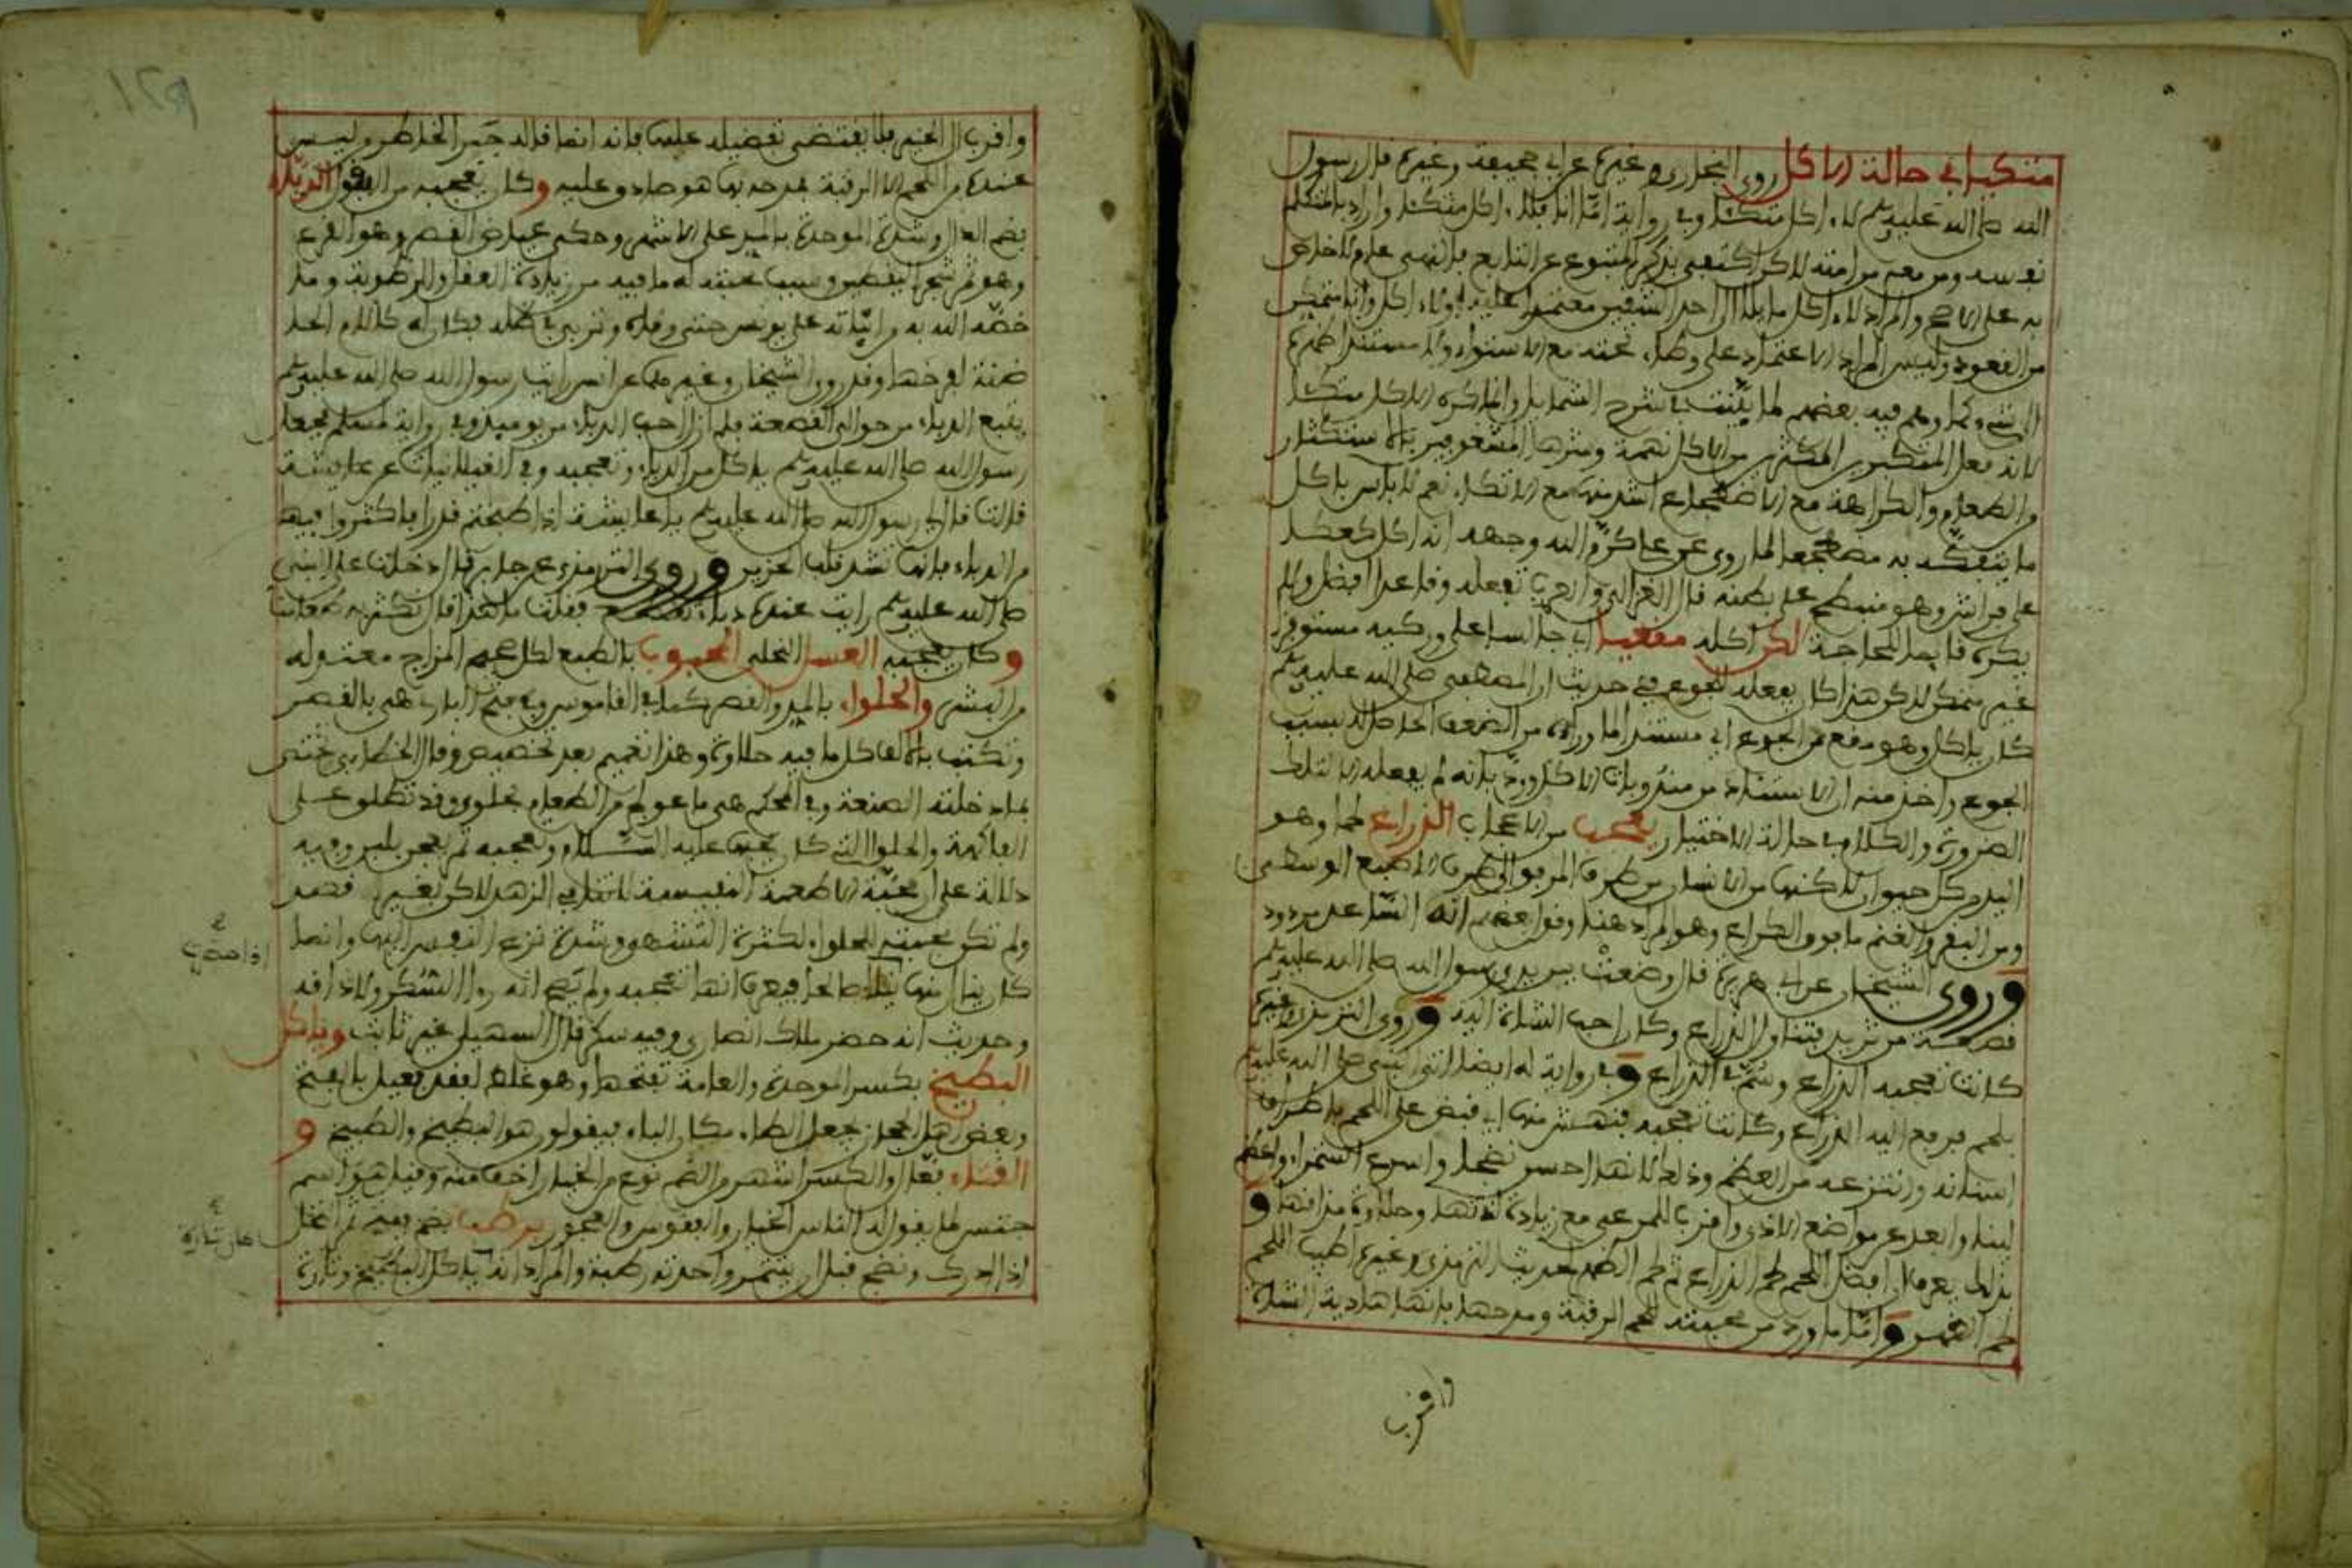 متكئا في حالة الاكل روى البخاري وغيره عن ابي جحيفة وغيره قال رسول
الله صلى الله عليه وسلم لا ءاكل متكئا وفي رواية اما انا فلا ءاكل متكئا واراد بالمتكلم
نفسه ومن معه من امته لاكن اكتفى بذكر المتبوع عن التابع فالنهي عام لا خاص
به على الاصح والمراد لا ءاكل مائلا الى احد الشقين معتمدا عليه او لا ءاكل وانا متمكن
من القعود وليس المراد الاعتماد على وطاء تحته مع الاستواء ولا مستند الظهر
الى شيء وكما وهم فيه بعضهم لما بينته في شرح الشمايل وانما كره الاكل متكئا
لانه فعل المتكبرين المكثرين من الاكل نهمة وشرها المشغوفين بالاستكثار
من الطعام والكراهة مع الاضطجاع اشد منها مع الاتكاء نعم لا باس باكل
ما يتفكه به مضطجعا لما روي عن علي كرم الله وجهه انه اكل كعكا
على فراش وهو منبطح على بطنه قال الغزالي والعرب تفعله وقاعدا افضل ولا
يكره قايما لحاجة لكن اكله مقعيا اي جالسا على وركيه مستوفز
غير متمكن لاكن هذا كان يفعله لجوع ففي حديث ان المصطفى صلى الله عليه وسلم
كان ياكل وهو مقع من الجوع اي مستند الما وراءه من الضعف الحاصل له بسبب
الجوع واخذ منه ان الاستناد من مندوبات الاكل ورد بانه لم يفعله الا لتلك
الضرورة والكلام في حالة الاختيار يعجب من الاعجاب الذراع لحما وهو
اليد من كل حيوان لاكنها من الانسان من طرف المرفق الى طرف الاصبع الوسطى
ومن البقر والغنم ما فوق الكراع وهو المراد هنا وقول بعضهم انه الساعد مردود
وروى الشيخان عن ابي هريرة قال وضعت بين يدي رسول الله صلى الله عليه وسلم
قصعة من ثريد فتناول الذراع وكان احب الشاة اليه وروى الترمذي وغيره
كانت تعجبه الذراع وسم في الذراع وفي رواية له ايضا اتى النبي صلى الله عليه وسلم
بلحم فرفع اليه الذراع وكانت تعجبه فنهش منها اي قبض على اللحم باطراف
اسنانه وانتزعه من العظم وذلك لانها احسن نضجا واسرع استمراء واعظم
لينا وابعد عن مواضع الاذى واقرب للمرعى مع زيادة لذتها وحلاوة مذاقها و
بذلك يعرف ان افضل اللحم لحم الذراع ثم لحم الظهر لحديث الترمذي وغيره اطيب اللحم
لحم الظهر واما ما ورد من محبته لحم الرقبة ومدحها بانها هادية الشاة
واقرب
واقرب الى الخير فلا يقتضي تفضيله عليها فانه انما قاله جبرا لخاطر وليس
عنده من اللحم الا الرقبة فمدحه بها هو صادق عليه وكان يعجبه من البقول الدباء
بضم الدال وشدة الموحدة بالمد على الاشهر وحكى عياض القصر وهو القرع
وهو ثمر شجر اليقطين وسبب محبته له ما فيه من زيادة العقل والرطوبة وما
خصه الله به من انباته على يونس حتى وقاه وتربى في ظله فكان له كالام الحا
ضنة لفرخها وقد روى الشيخان وغيرهما عن انس رايت رسول الله صلى الله عليه وسلم
يتبع الدباء من حوالي القصعة فلم ازل احب الدباء من يومئذ وفي رواية لمسلم فجعل
رسول الله صلى الله عليه وسلم ياكل من الدباء وتعجبه وفي الغيلانيات عن عايشة
قالت قال لي رسول الله صلى الله عليه وسلم يا عايشة اذا طبختم قدرا فاكثروا فيها
من الدباء فانها تشد قلب الحزين وروى الترمذي عن جابر قال دخلت على النبي
صلى الله عليه وسلم رايت عنده دباء تقطع فقلت ما هذا قال نكثر به طعامنا
وكان يعجبه العسل النحلي المحبوب بالطبع لكل صحيح المزاج معتدله
من البشر والحلواء بالمد والقصر كما في القاموس وفي فتح الباري هي بالقصر
وتكتب بالالف كل ما فيه حلاوة وهذا تعميم بعد تخصيص وقال الخطابي تختص
بما دخلته الصنعة وفي المحكم هي ما عولج من الطعام بحلو وقد تطلق على
الفاكهة والحلوا التي كان يحبها عليه السلام وتعجبه تمر يعجن بلبن وفيه
دلالة على ان محبة الاطعمة النفيسة لا تنافي الزهد لاكن بغير قصد
ولم تكن محبته للحلواء لكثرة التشهي وشدة نزع النفس اليها وانما
كان ينال منها نيلا صالحا فيعرف انها تعجبه ولم يصح انه راى السكر ولا ذاقه
وحديث انه حضر ملاك انصاري وفيه سكر قال السهيلي غير ثابت وياكل
البطيخ بكسر الموحدة والعامة تفتحها وهو غلط لفقد فعيل بالفتح
وبعض اهل الحجاز يجعل الطاء مكان الباء فيقولون هو البطيخ والطبيخ و
القثاء بقاف والكسر اشهر من الضم نوع من الخيار اخف منه وقيل هو اسم
جنس لما يقول له الناس الخيار والفقوس والعجور برطب بضم ففتح ثمر النخل
اذا ادرك ونضج قبل ان يتتمر واحدته رطبة والمراد انه ياكل البطيخ وتارة